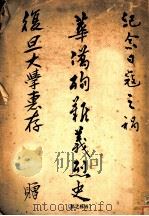 紀念日寇之禍
華僑殉難義烈史
復旦大學惠存
贈